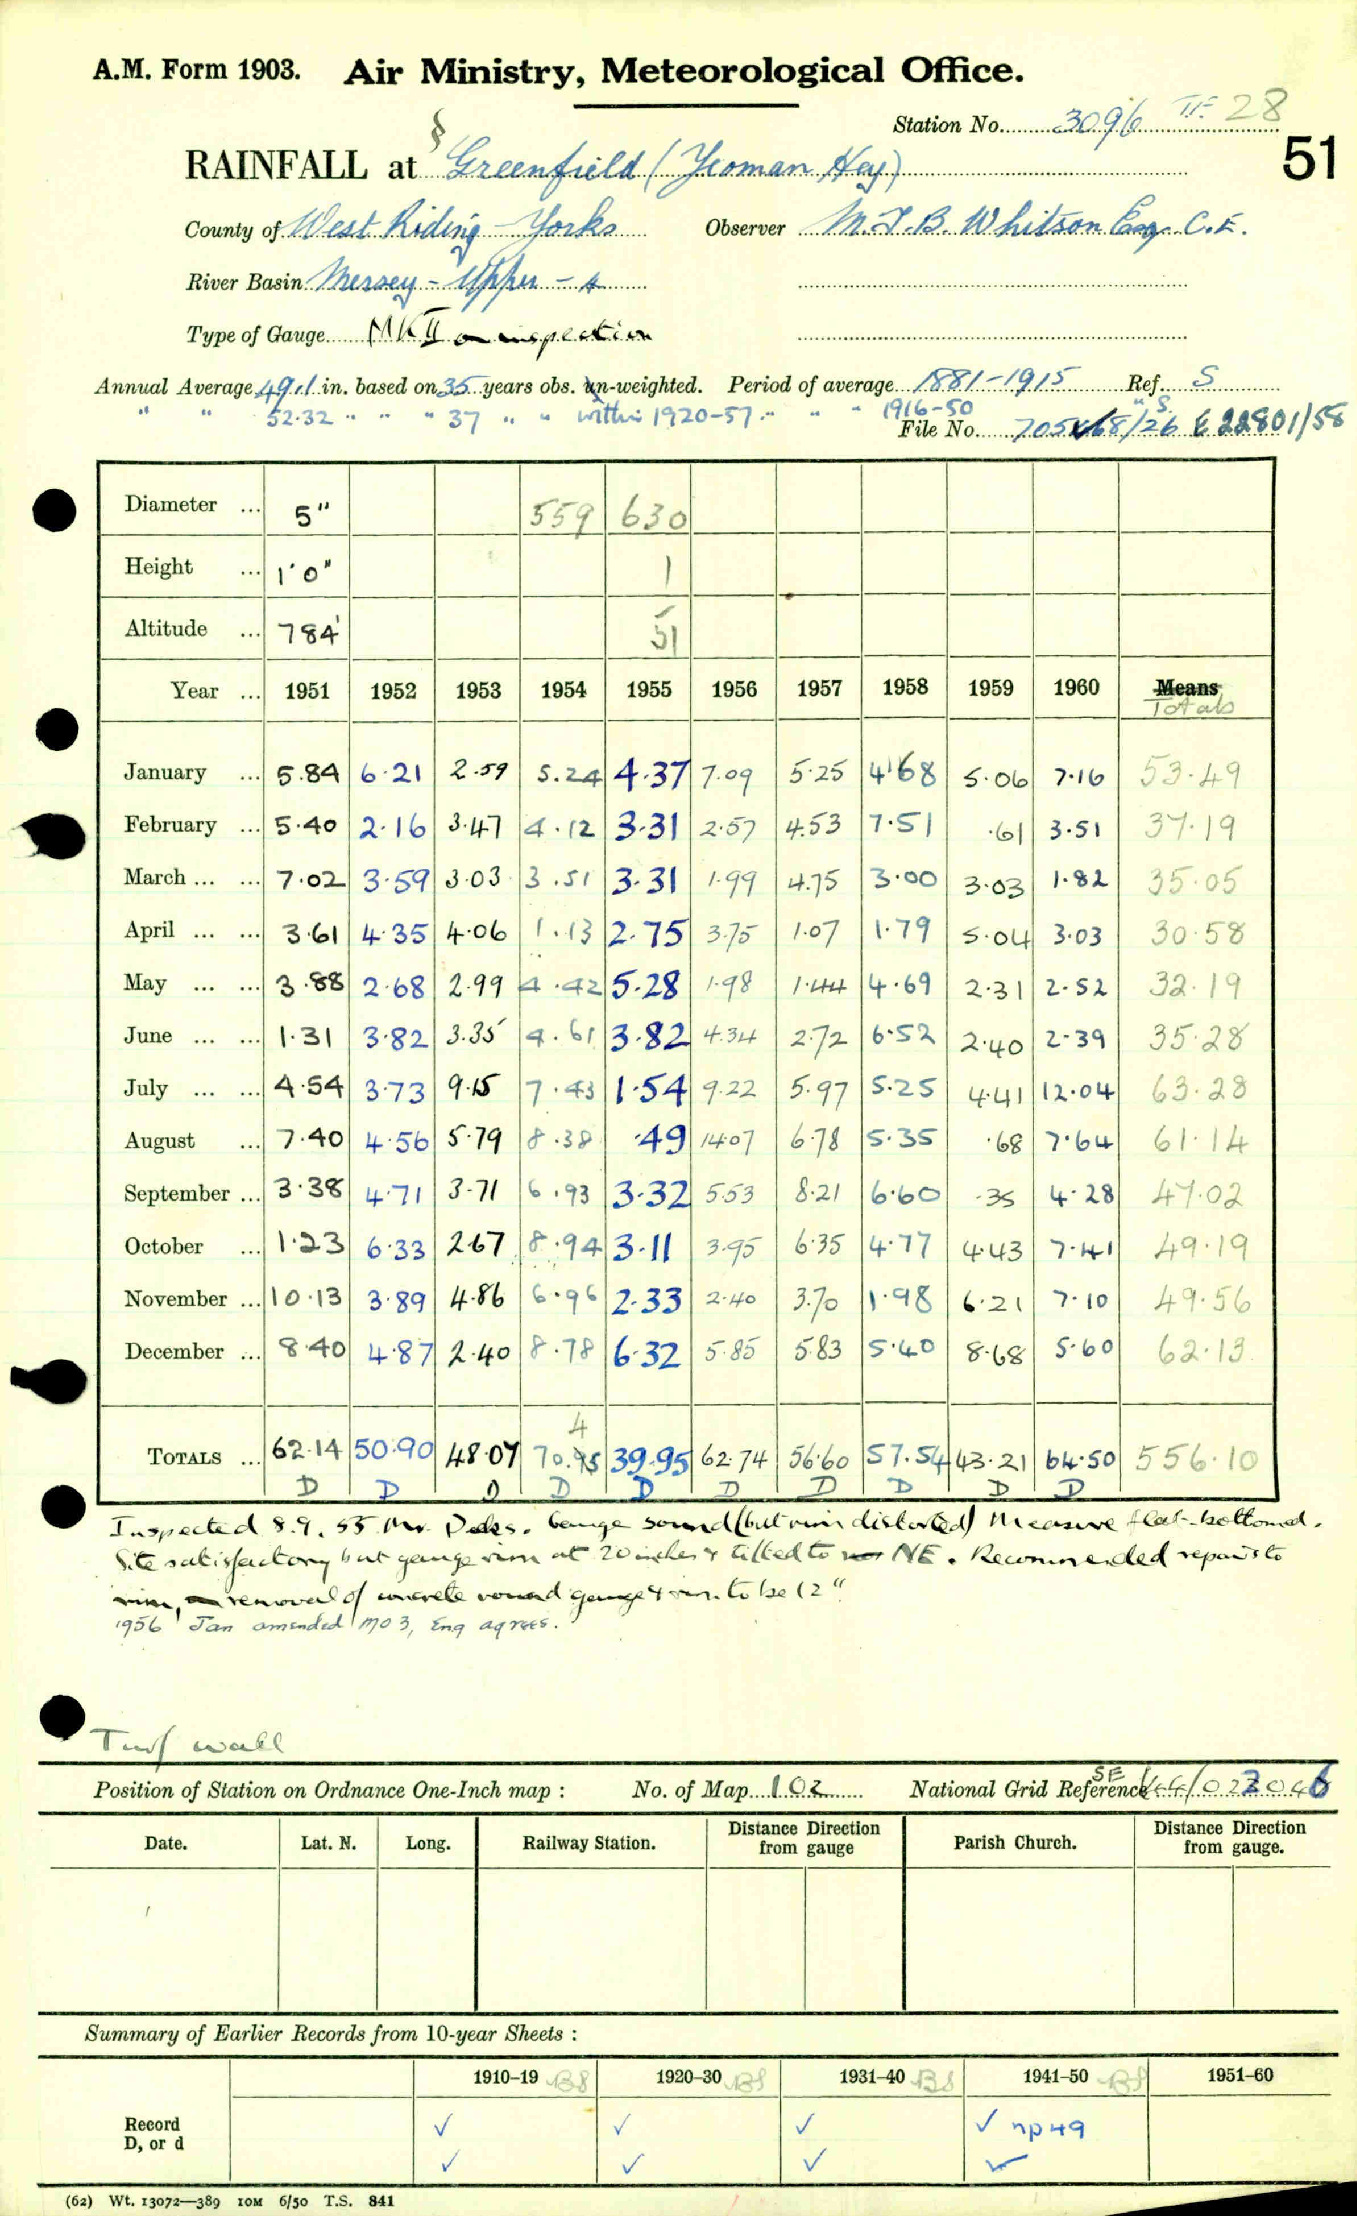 A.M. Form 1903. Air Ministry, Meteorological Office.
Station No. 3096 28
51
RAINFALL at Greenfield (Yeoman Hey)
County of West Riding - Yorks Observer M.T.B. Whitson Esq. C.E.
River Basin Mersey - Upper -
Type of Gauge MK II on inspection
Annual Average 49.1 in. based on 35 years obs. un-weighted. Period of average 1881-1915 Ref. S
" " 52.32 " " " 37 " " within 1920-57 " " " 1916-50 " S.
File No. 705468/26 E 22801/58
Diameter ... 5" 559 630
Height ... 1'0" 1
Altitude ... 784' 51
Year ... 1951 1952 1953 1954 1955 1956 1957 1958 1959 1960 Means
Totals
January ... 5.84 6.21 2.59 5.24 4.37 7.09 5.25 4.68 5.06 7.16 53.49
February ... 5.40 2.16 3.47 4.12 3.31 2.57 4.53 7.51 .61 3.51 37.19
March ... ... 7.02 3.59 3.03 3.51 3.31 1.99 4.75 3.00 3.03 1.82 35.05
April ... ... 3.61 4.35 4.06 1.13 2.75 3.75 1.07 1.79 5.04 3.03 30.58
May ... ... 3.88 2.68 2.99 4.42 5.28 1.98 1.44 4.69 2.31 2.52 32.19
June ... ... 1.31 3.82 3.35 4.61 3.82 4.34 2.72 6.52 2.40 2.39 35.28
July ... ... 4.54 3.73 9.15 7.43 1.54 9.22 5.97 5.25 4.41 12.04 63.28
August ... 7.40 4.56 5.79 8.38 .49 14.07 6.78 5.35 .68 7.64 61.14
September ... 3.38 4.71 3.71 6.93 3.32 5.53 8.21 6.60 .35 4.28 47.02
October ... 1.23 6.33 2.67 8.94 3.11 3.95 6.35 4.77 4.43 7.41 49.19
November ... 10.13 3.89 4.86 6.96 2.33 2.40 3.70 1.98 6.21 7.10 49.56
December ... 8.40 4.87 2.40 8.78 6.32 5.85 5.83 5.40 8.68 5.60 62.13
4
TOTALS ... 62.14 50.90 48.07 70.95 39.95 62.74 56.60 57.54 43.21 64.50 556.10
D D D D D D D D D D
Inspected 8.9.55 Mr. Gauge sound (but rim distorted) Measure flat-bottomed.
Site satisfactory but gauge rim at 20 inches & tilted to NE. Recommended repairs to
rim, removal of concrete round gauge & rim to be 12"
1956 Jan amended MO3, Eng agrees.
Turf wall
Position of Station on Ordnance One-Inch map : No. of Map 102 National Grid Reference SE 44/022046
Date. Lat. N. Long. Railway Station. Distance from Direction gauge Parish Church. Distance from Direction gauge.
Summary of Earlier Records from 10-year Sheets :
1910-19 BS 1920-30 BS 1931-40 BS 1941-50 BS 1951-60
Record ✓ ✓ ✓ ✓ np49
D, or d ✓ ✓ ✓ ✓
(62) Wt. 13072—389 10M 6/50 T.S. 841